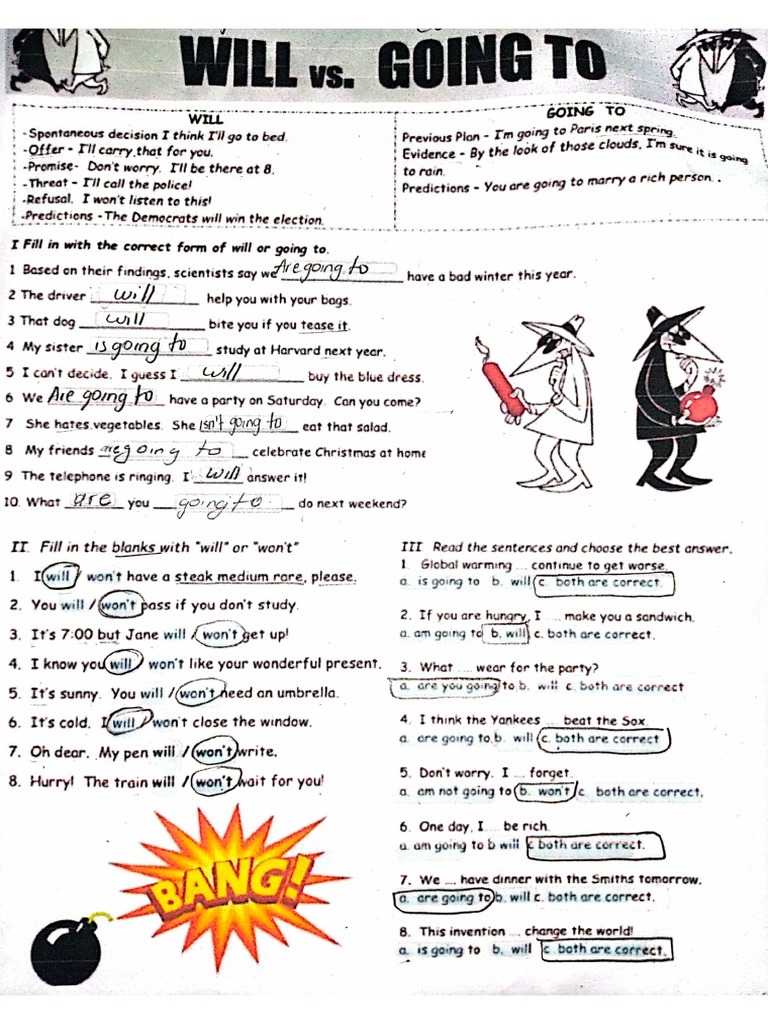 WILL vs. GOING TO
WILL
-Spontaneous decision I think I'll go to bed.
-Offer - I'll carry that for you.
-Promise- Don't worry. I'll be there at 8.
-Threat - I'll call the police!
-Refusal. I won't listen to this!
-Predictions -The Democrats will win the election.
GOING TO
Previous Plan - I'm going to Paris next spring.
Evidence - By the look of those clouds, I'm sure it is going
to rain.
Predictions - You are going to marry a rich person. .
I Fill in with the correct form of will or going to.
1 Based on their findings, scientists say we Are going to have a bad winter this year.
2 The driver will help you with your bags.
3 That dog will bite you if you tease it.
4 My sister is going to study at Harvard next year.
5 I can't decide. I guess I will buy the blue dress.
6 We Are going to have a party on Saturday. Can you come?
7 She hates vegetables. She isn't going to eat that salad.
8 My friends are going to celebrate Christmas at home
9 The telephone is ringing. I will answer it!
10. What are you going to do next weekend?
II. Fill in the blanks with "will" or "won't"
1. I will / won't have a steak medium rare, please.
2. You will / won't pass if you don't study.
3. It's 7:00 but Jane will / won't get up!
4. I know you will / won't like your wonderful present.
5. It's sunny. You will / won't need an umbrella.
6. It's cold. I will / won't close the window.
7. Oh dear. My pen will / won't write.
8. Hurry! The train will / won't wait for you!
BANG!
III Read the sentences and choose the best answer.
1. Global warming .... continue to get worse.
a. is going to b. will c. both are correct.
2. If you are hungry, I .... make you a sandwich.
a. am going to b. will c. both are correct.
3. What .... wear for the party?
a. are you going to b. will c. both are correct
4. I think the Yankees .... beat the Sox.
a. are going to b. will c. both are correct
5. Don't worry. I .... forget.
a. am not going to b. won't c. both are correct.
6. One day, I.... be rich.
a. am going to b will c both are correct.
7. We .... have dinner with the Smiths tomorrow.
a. are going to b. will c. both are correct.
8. This invention .... change the world!
a. is going to b. will c. both are correct.